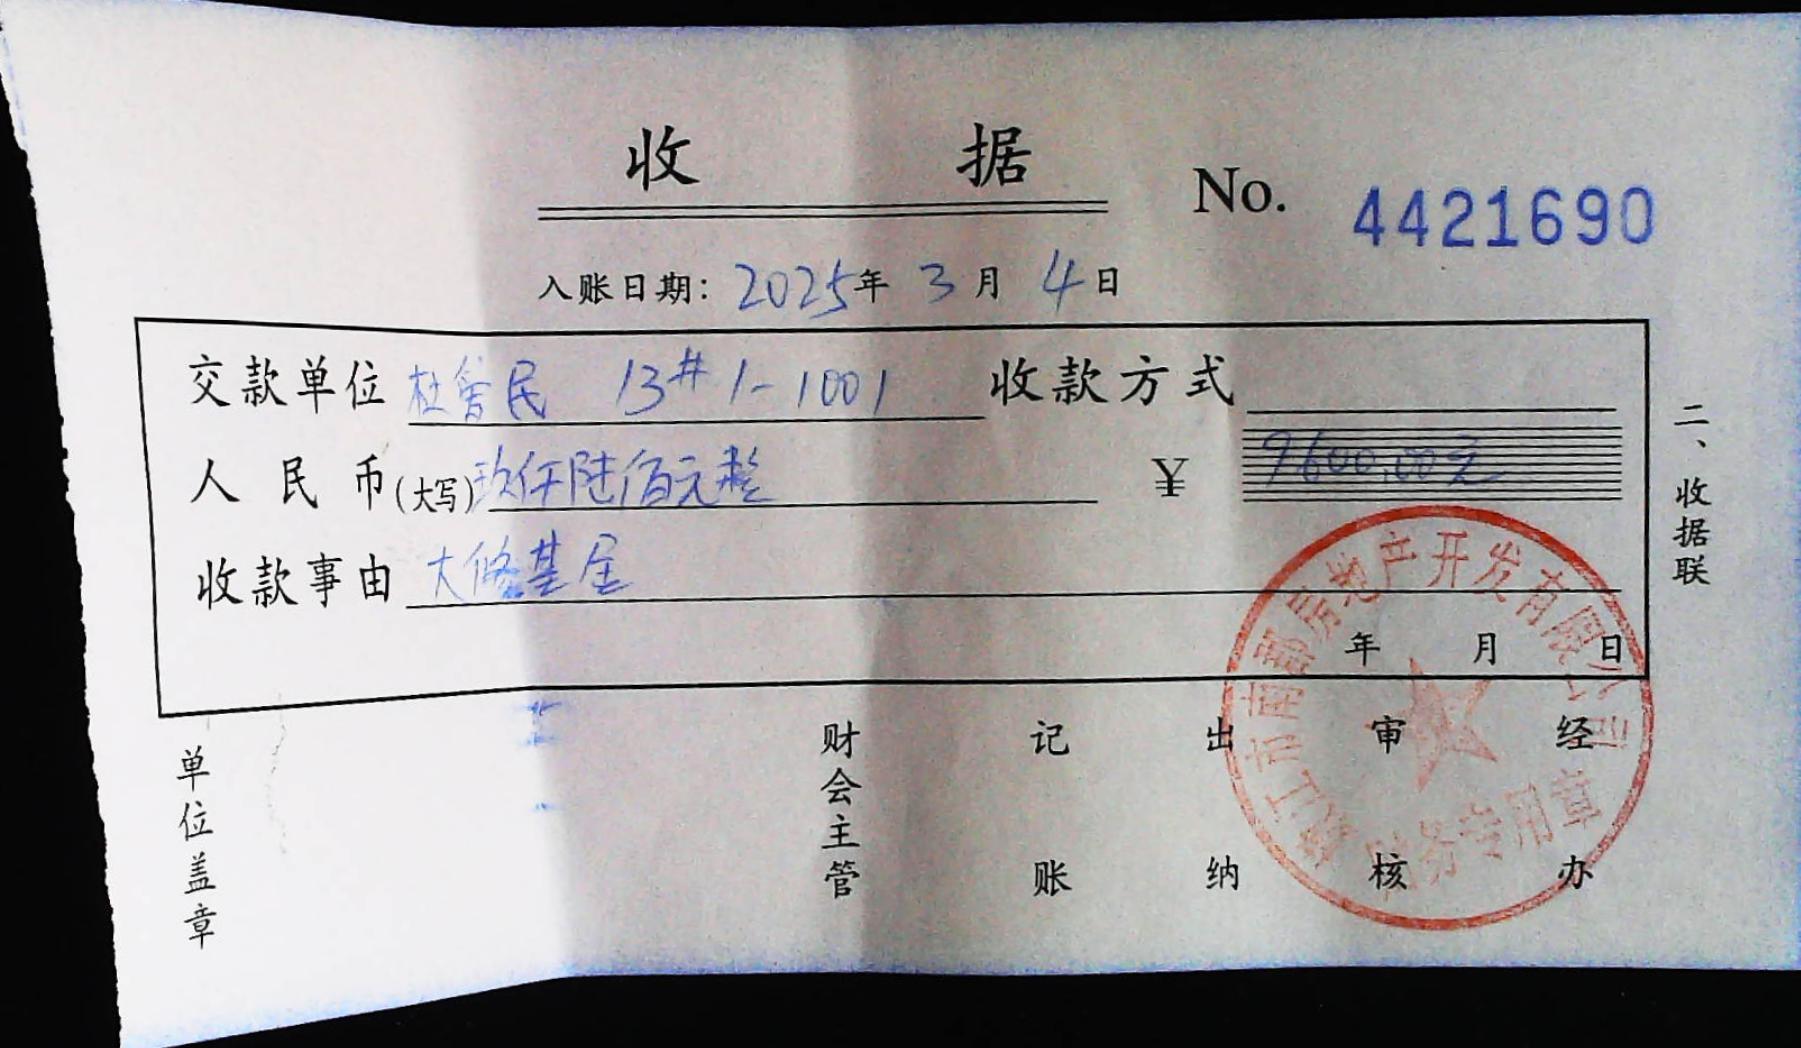 收 据
No. 4421690
入账日期：2025年 3月 4日
交款单位 杜曾民 13# 1-1001 收款方式
人民币(大写)玖仟陆佰元整 ¥ 9600.00元
收款事由 大修基金
年 月 日
二、收据联
单位盖章
财会主管
记账
出纳
审核
经办
市南部房地产开发有限公司
财务专用章